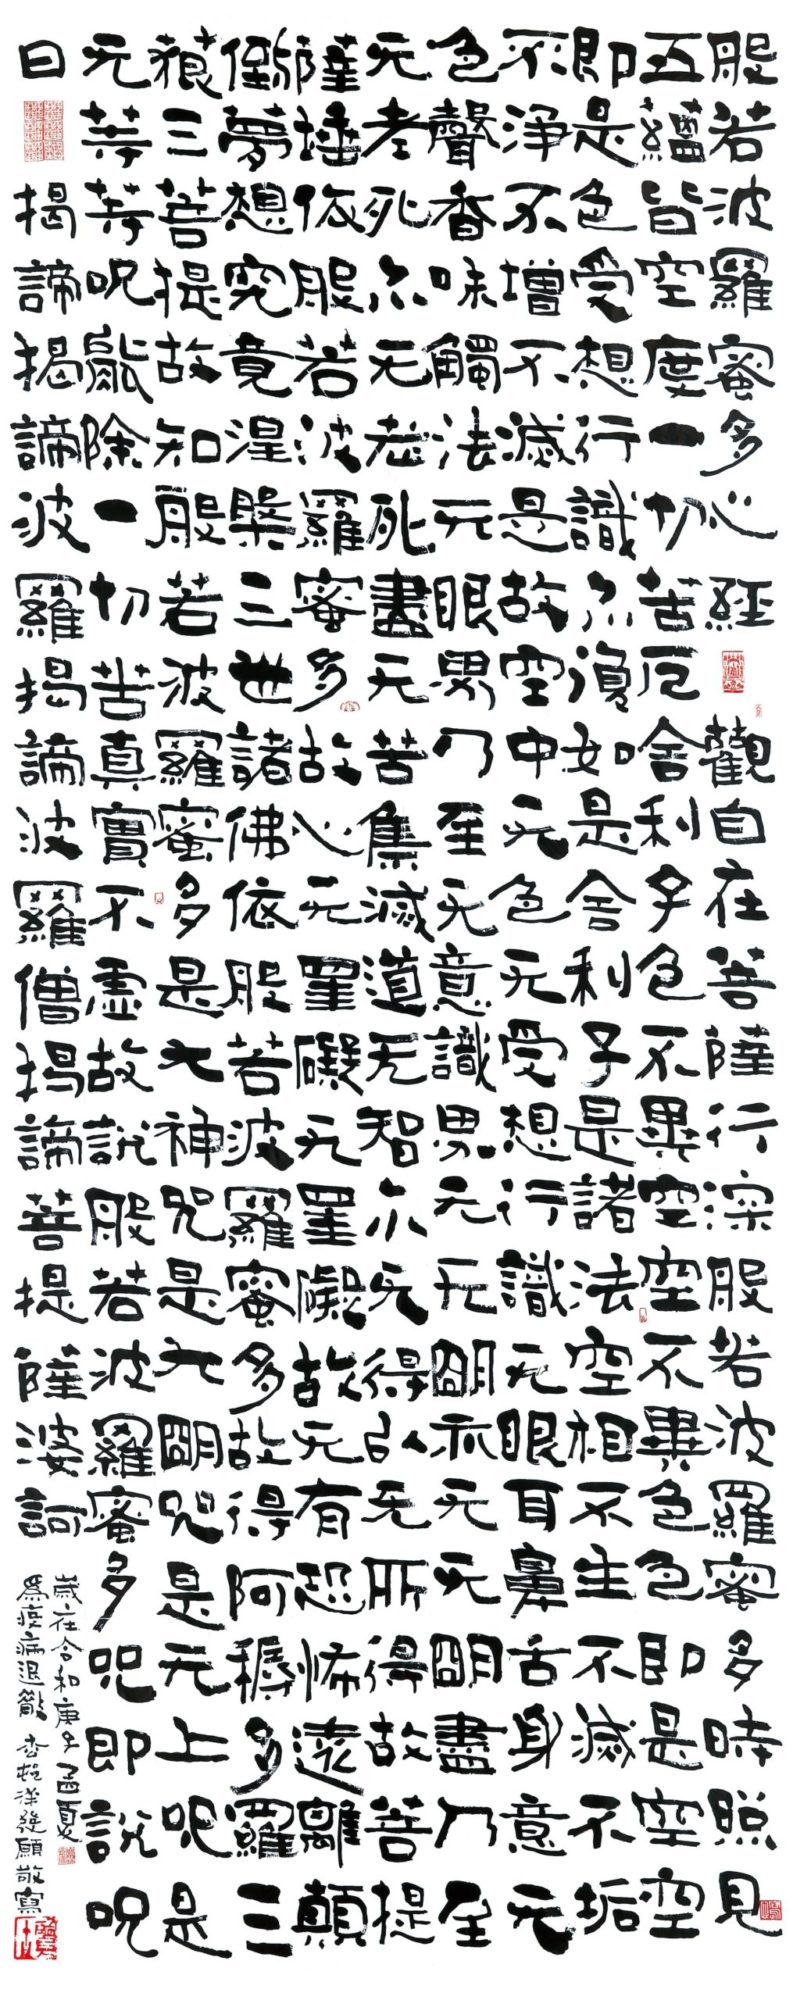 般若波羅蜜多心經 觀自在菩薩行深般若波羅蜜多時照見
五蘊皆空度一切苦厄舍利子色不異空空不異色色即是空空
即是色受想行識亦復如是舍利子是諸法空相不生不滅不垢
不浄不增不滅是故空中无色无受想行識无眼耳鼻舌身意无
色聲香味觸法无眼界乃至无意識界无无明亦无无明盡乃至
无老死亦无老死盡无苦集滅道无智亦无得以无所得故菩提
薩埵依般若波羅蜜多故心无罣礙无罣礙故无有恐怖遠離顛
倒夢想究竟涅槃三世諸佛依般若波羅蜜多故得阿耨多羅三
藐三菩提故知般若波羅蜜多是大神呪是大明呪是无上呪是
无等等呪能除一切苦真實不虛故說般若波羅蜜多呪即說呪
曰 揭諦揭諦波羅揭諦波羅僧揭諦菩提薩婆訶
歲在令和庚子孟夏
為疫病退散 發願敬寫